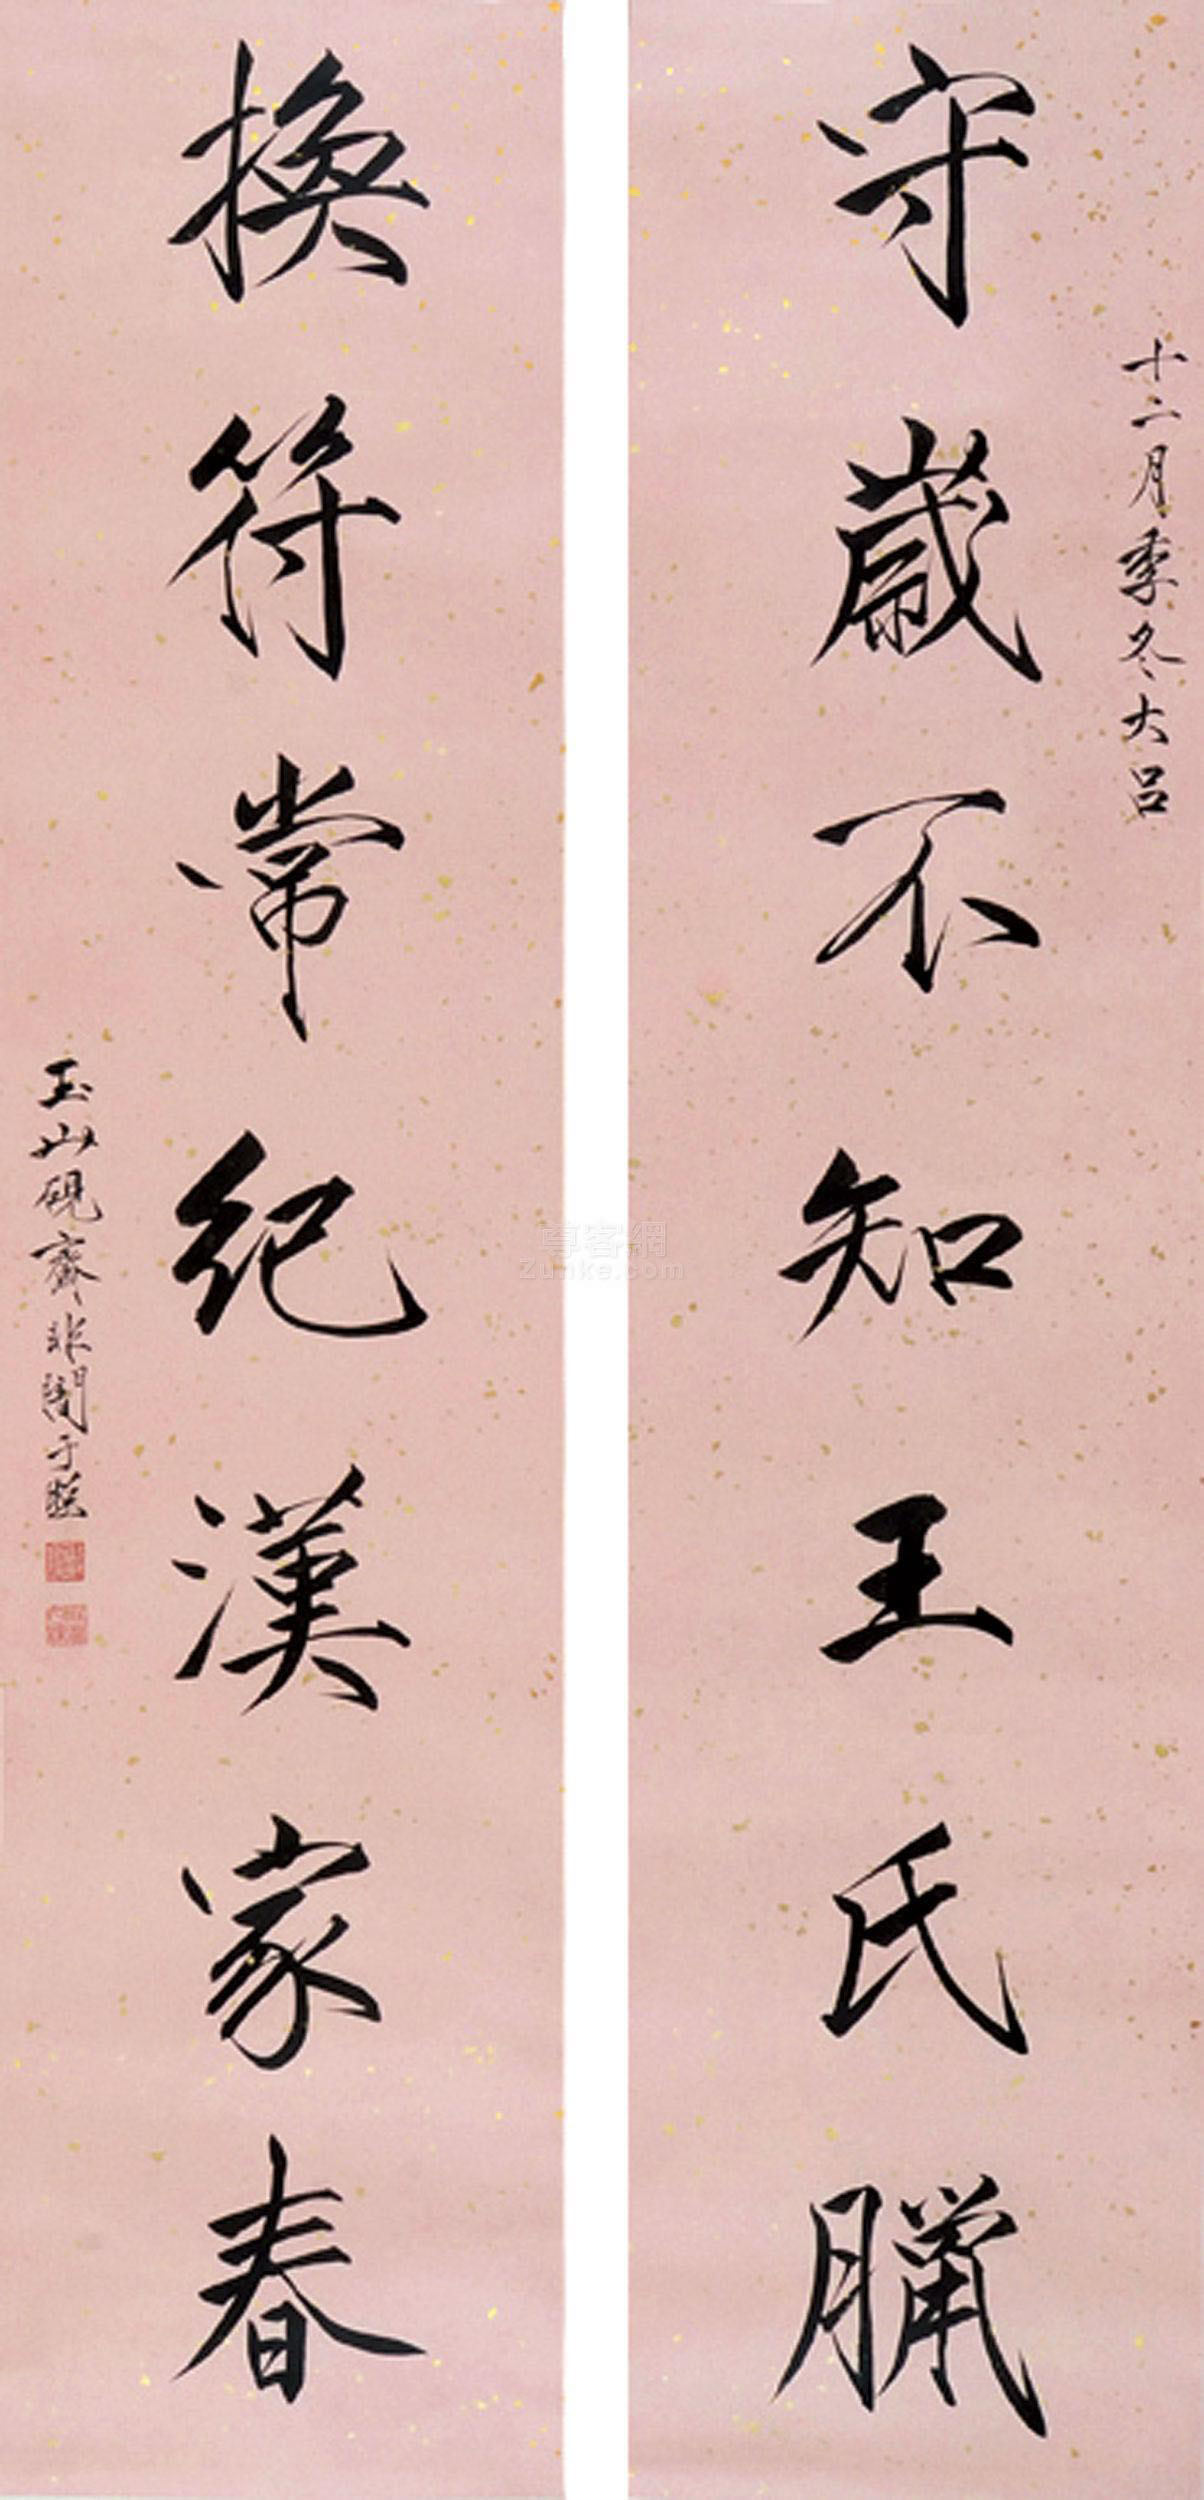 十二月季冬大呂
守歲不知王氏臘
換符常紀漢家春
玉山硯齋非闇于照
尊客網
Zunke.com